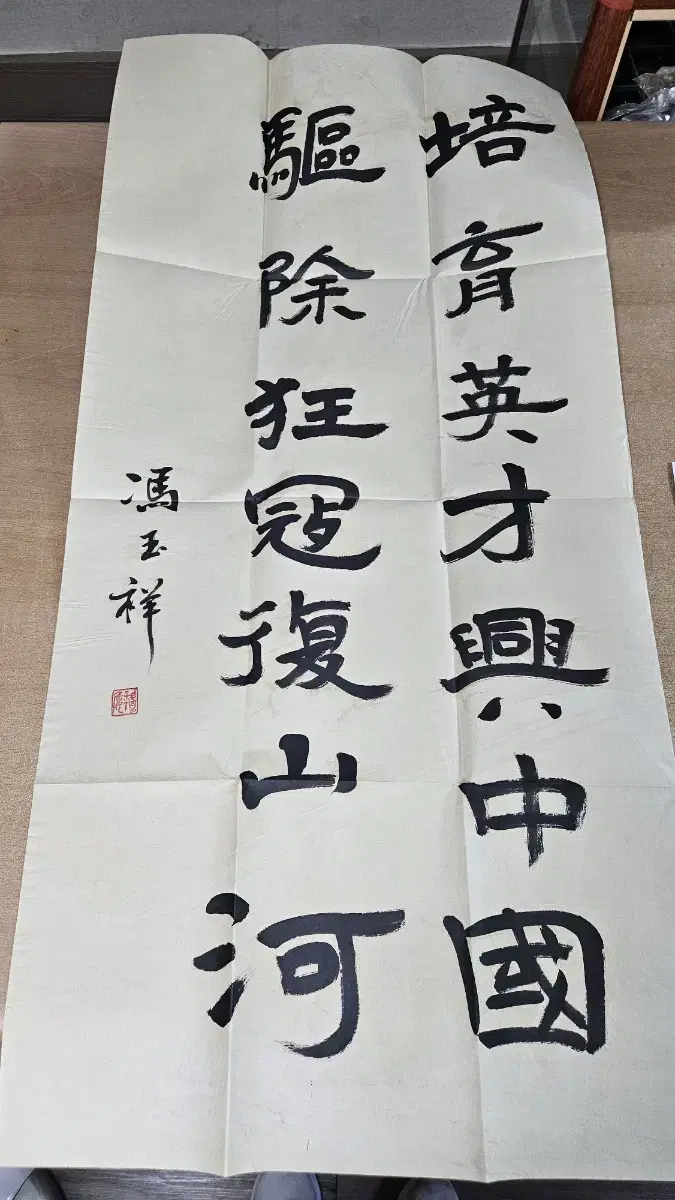 培育英才興中國
驅除狂冦復山河
馮玉祥